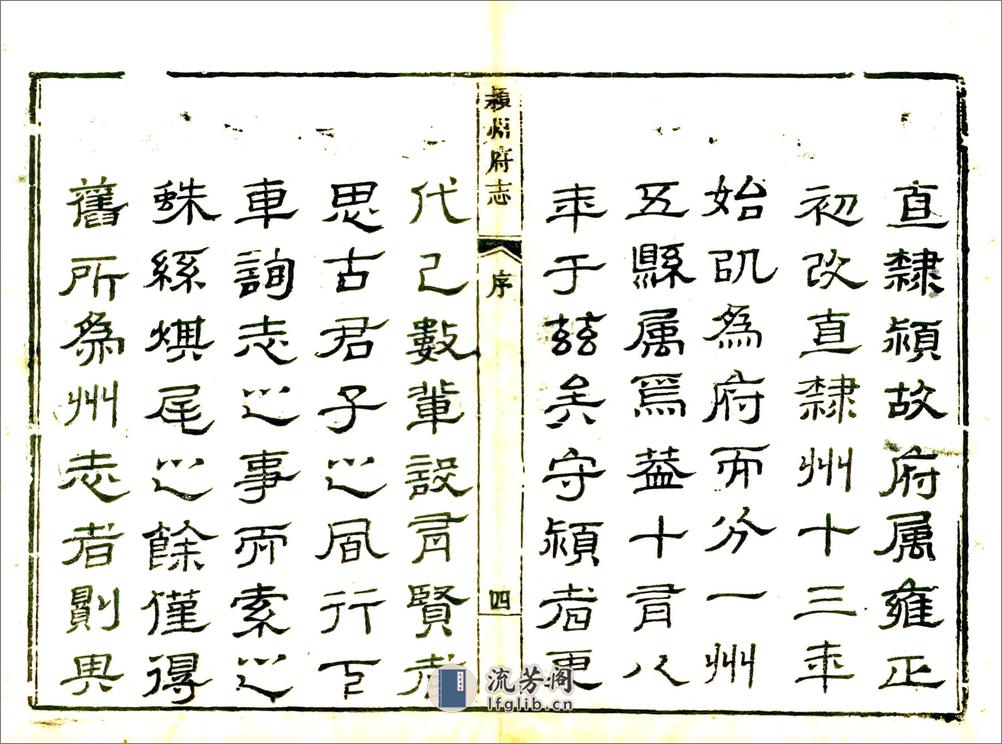 直隸潁故府属雍正
初改直隸州十三年
始卽為府而分一州
五縣属焉蓋十有八
年于茲矣守潁者更
潁州府志
序
四
代已數輩設有賢者
思古君子之風行下
車詢志之事而索之
蛛絲煤尾之餘僅得
舊所為州志者則與
流芳阁
lfglib.cn